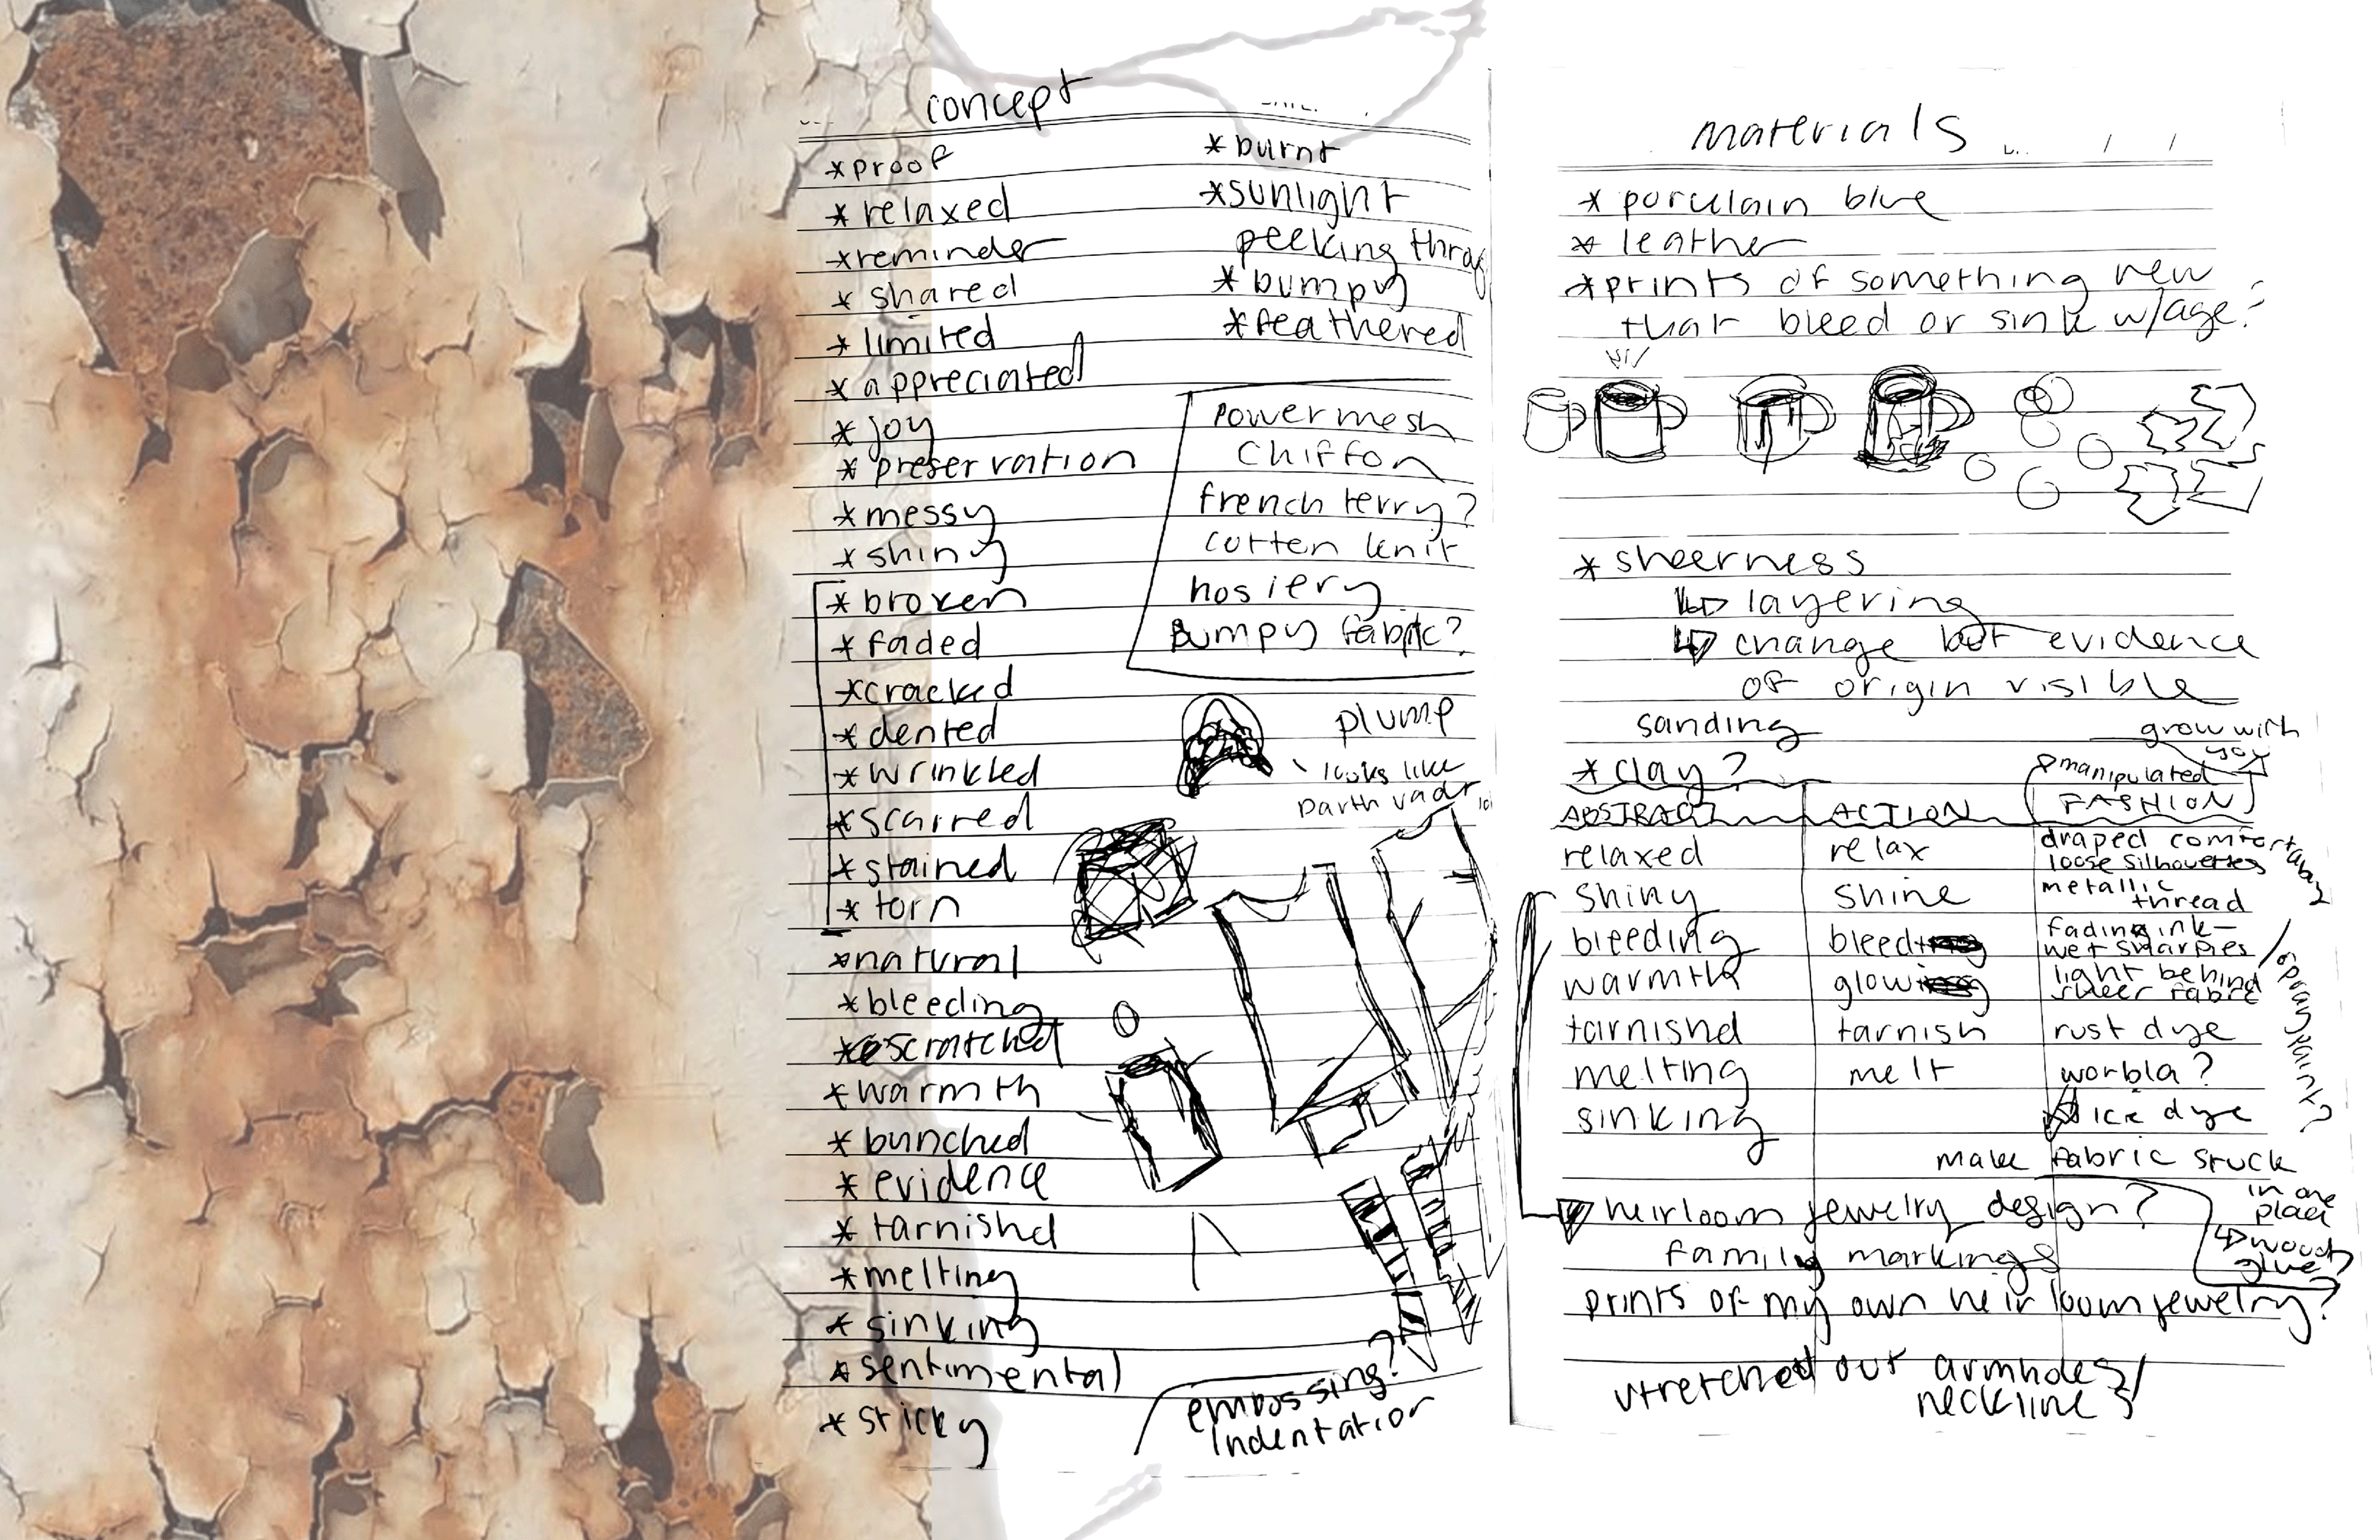 concept
*proof
*relaxed
*reminder
*shared
*limited
*appreciated
*joy
*preservation
*messy
*shiny
*broken
*faded
*cracked
*dented
*wrinkled
*scarred
*stained
*torn
*natural
*bleeding
*scratched
*warmth
*bunched
*evidence
*tarnishd
*melting
*sinking
*sentimental
*sticky
*burnt
*sunlight
peeking throug
*bumpy
*feathered
powermesh
chiffon
french terry?
cotten knit
hosiery
Bumpy fabric?
plump
looks like
Darth vadr
embossing?
indentation
materials
*porcelain blue
*leather
*prints of something new
that bleed or sink w/age?
*sheerness
↳ layering
↳ change but evidence
of origin visible
sanding
*clay?
grow with
you
manipulated
ABSTRACT ACTION FASHION
relaxed relax draped comfortably
loose silhouettes
shiny shine metallic
thread
bleeding bleed fading ink-
wet sharpies
warmth glow light behind
sheer fabrc
spray paint?
tarnishd tarnish rust dye
melting melt worbla?
sinking ice dye
make fabric stuck
in one
place
↳ wood
glue?
heirloom jewelry design?
family markings
prints of my own heirloom jewelry?
stretched out armholes/
neckline